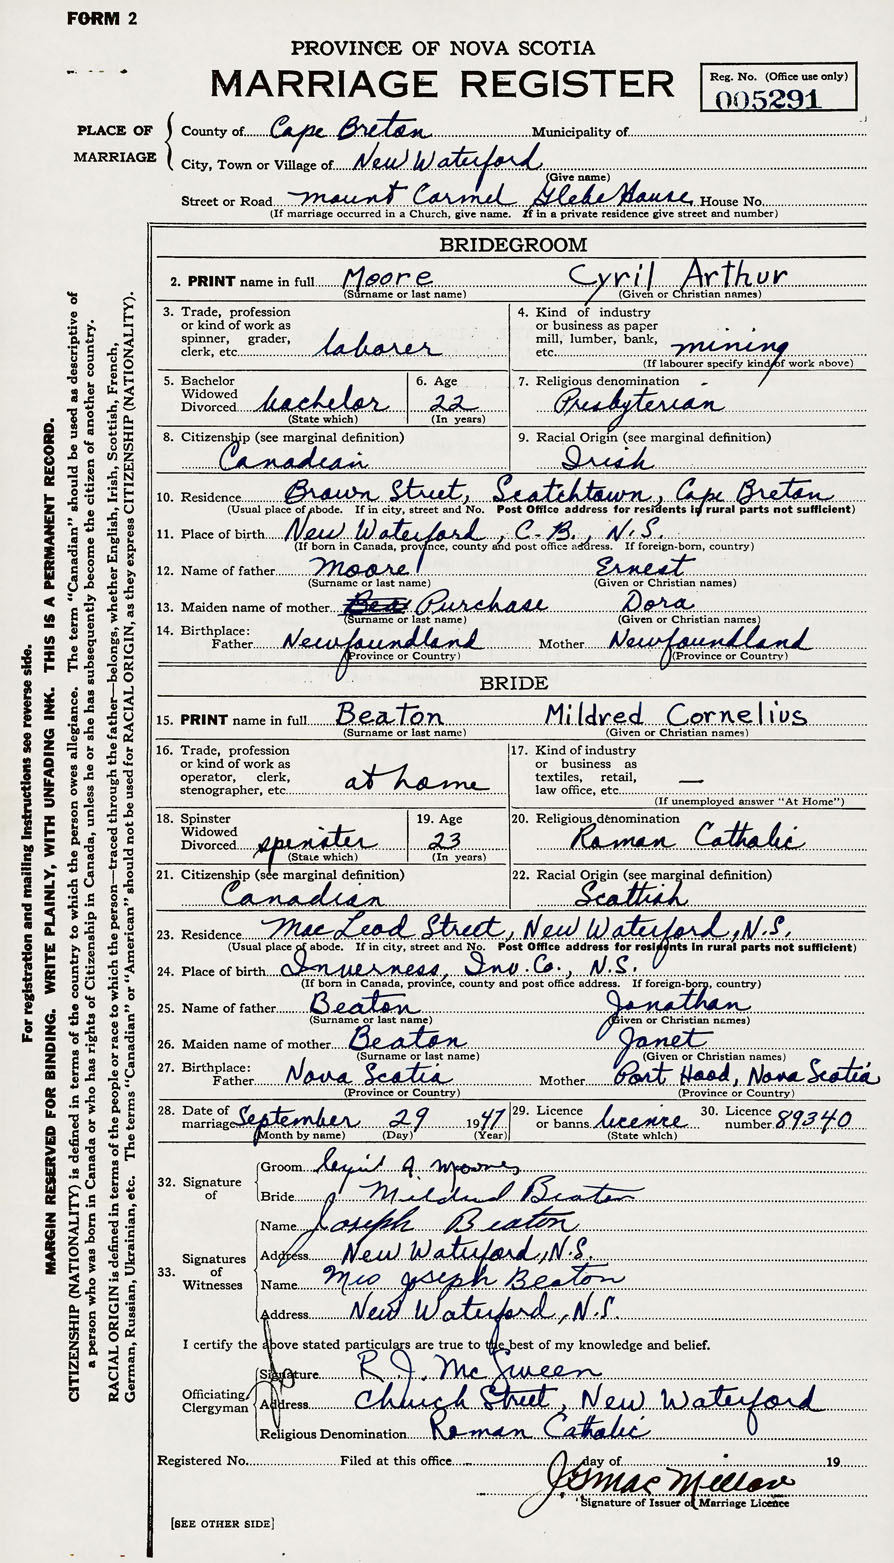 FORM 2
PROVINCE OF NOVA SCOTIA
MARRIAGE REGISTER
Reg. No. (Office use only)
005291
PLACE OF MARRIAGE
County of Cape Breton Municipality of
City, Town or Village of New Waterford
(Give name)
Street or Road Mount Carmel Glebe House, House No.
(If marriage occurred in a Church, give name. If in a private residence give street and number)
BRIDEGROOM
2. PRINT name in full Moore Cyril Arthur
(Surname or last name) (Given or Christian names)
3. Trade, profession or kind of work as spinner, grader, clerk, etc. laborer
4. Kind of industry or business as paper mill, lumber, bank, etc. mining
(If labourer specify kind of work above)
5. Bachelor Widowed Divorced bachelor
(State which)
6. Age 22
(In years)
7. Religious denomination
Presbyterian
8. Citizenship (see marginal definition)
Canadian
9. Racial Origin (see marginal definition)
Irish
10. Residence Brown Street, Scotchtown, Cape Breton
(Usual place of abode. If in city, street and No. Post Office address for residents in rural parts not sufficient)
11. Place of birth New Waterford, C.B., N.S.
(If born in Canada, province, county and post office address. If foreign-born, country)
12. Name of father Moore Ernest
(Surname or last name) (Given or Christian names)
13. Maiden name of mother Bea Purchase Dora
(Surname or last name) (Given or Christian names)
14. Birthplace: Father Newfoundland Mother Newfoundland
(Province or Country) (Province or Country)
BRIDE
15. PRINT name in full Beaton Mildred Cornelius
(Surname or last name) (Given or Christian names)
16. Trade, profession or kind of work as operator, clerk, stenographer, etc. at home
17. Kind of industry or business as textiles, retail, law office, etc. —
(If unemployed answer "At Home")
18. Spinster Widowed Divorced spinster
(State which)
19. Age 23
(In years)
20. Religious denomination
Roman Catholic
21. Citizenship (see marginal definition)
Canadian
22. Racial Origin (see marginal definition)
Scottish
23. Residence MacLeod Street, New Waterford, N.S.
(Usual place of abode. If in city, street and No. Post Office address for residents in rural parts not sufficient)
24. Place of birth Inverness, Inv. Co., N.S.
(If born in Canada, province, county and post office address. If foreign-born, country)
25. Name of father Beaton Jonathan
(Surname or last name) (Given or Christian names)
26. Maiden name of mother Beaton Janet
(Surname or last name) (Given or Christian names)
27. Birthplace: Father Nova Scotia Mother Port Hood, Nova Scotia
(Province or Country) (Province or Country)
28. Date of marriage September 29 1947
(Month by name) (Day) (Year)
29. Licence or banns licence
(State which)
30. Licence number 89340
32. Signature of
Groom Cyril A Moores
Bride Mildred Beaton
33. Signatures of Witnesses
Name Joseph Beaton
Address New Waterford, N.S.
Name Mrs Joseph Beaton
Address New Waterford, N.S.
I certify the above stated particulars are true to the best of my knowledge and belief.
Officiating Clergyman
Signature R. J. McSween
Address Church Street, New Waterford
Religious Denomination Roman Catholic
Registered No. Filed at this office day of 19
Signature of Issuer of Marriage Licence
[SEE OTHER SIDE]
For registration and mailing instructions see reverse side.
MARGIN RESERVED FOR BINDING. WRITE PLAINLY, WITH UNFADING INK. THIS IS A PERMANENT RECORD.
CITIZENSHIP (NATIONALITY) is defined in terms of the country to which the person owes allegiance. The term "Canadian" should be used as descriptive of
a person who was born in Canada or who has rights of Citizenship in Canada, unless he or she has subsequently become the citizen of another country.
RACIAL ORIGIN is defined in terms of the people or race to which the person—traced through the father—belongs, whether English, Irish, Scottish, French,
German, Russian, Ukrainian, etc. The terms "Canadian" or "American" should not be used for RACIAL ORIGIN, as they express CITIZENSHIP (NATIONALITY).